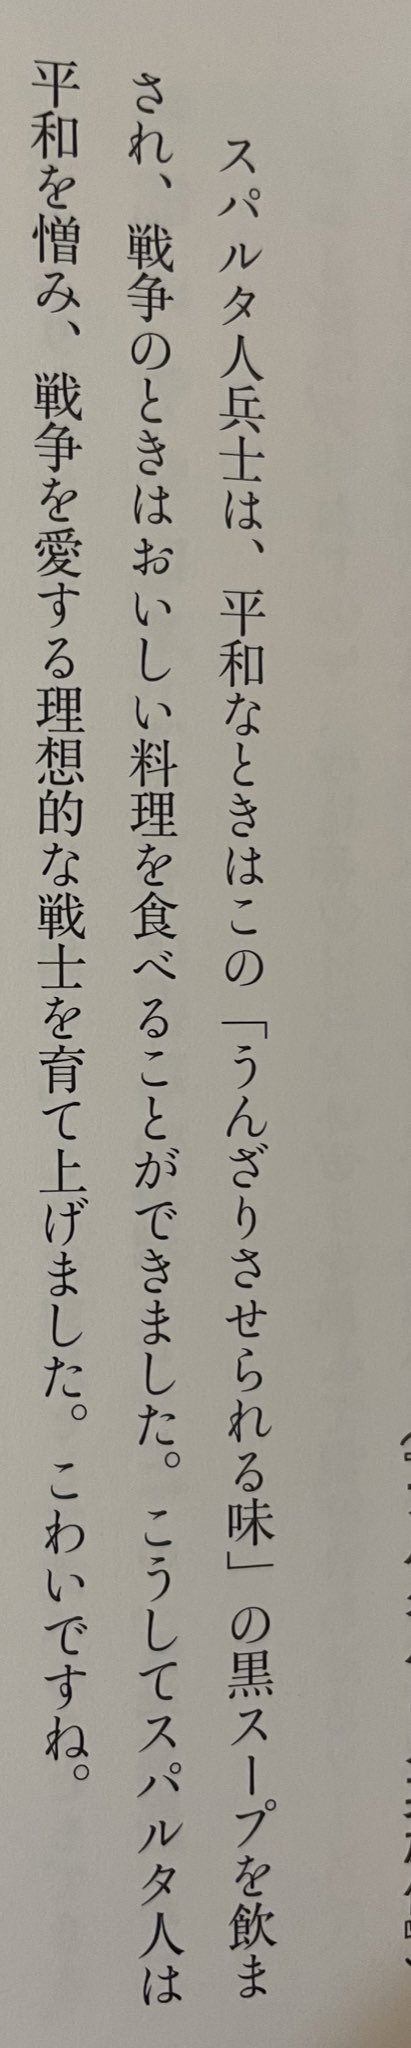 スパルタ人兵士は、平和なときはこの「うんざりさせられる味」の黒スープを飲ま
され、戦争のときはおいしい料理を食べることができました。こうしてスパルタ人は
平和を憎み、戦争を愛する理想的な戦士を育て上げました。こわいですね。